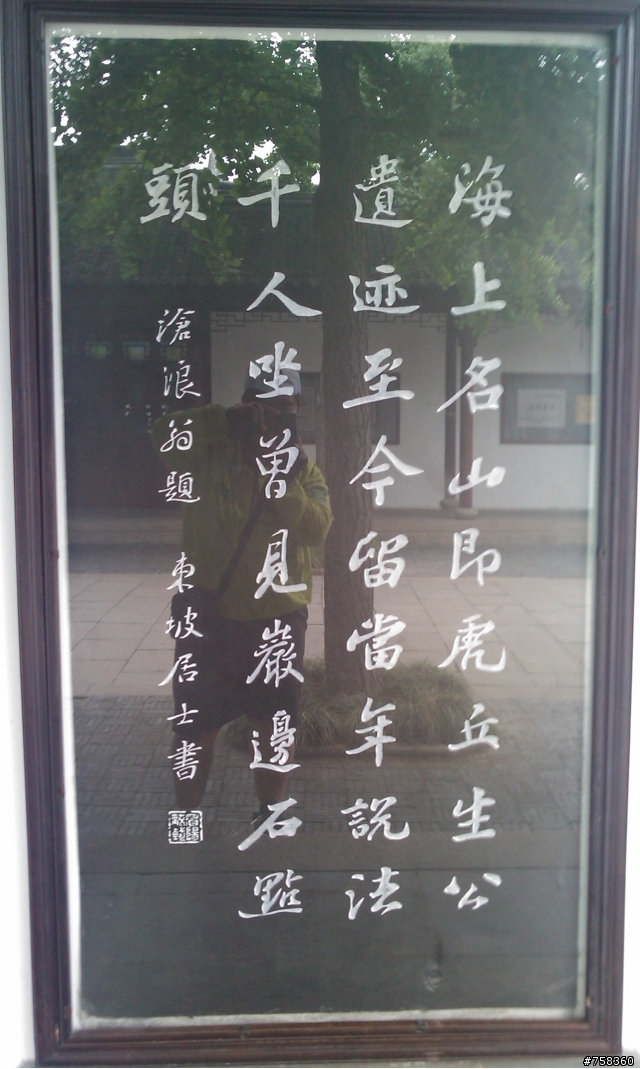 海上名山即虎丘生公
遺迹至今留當年説法
千人坐曾見巖邊石點
頭
滄浪翁題 東坡居士書
#758360